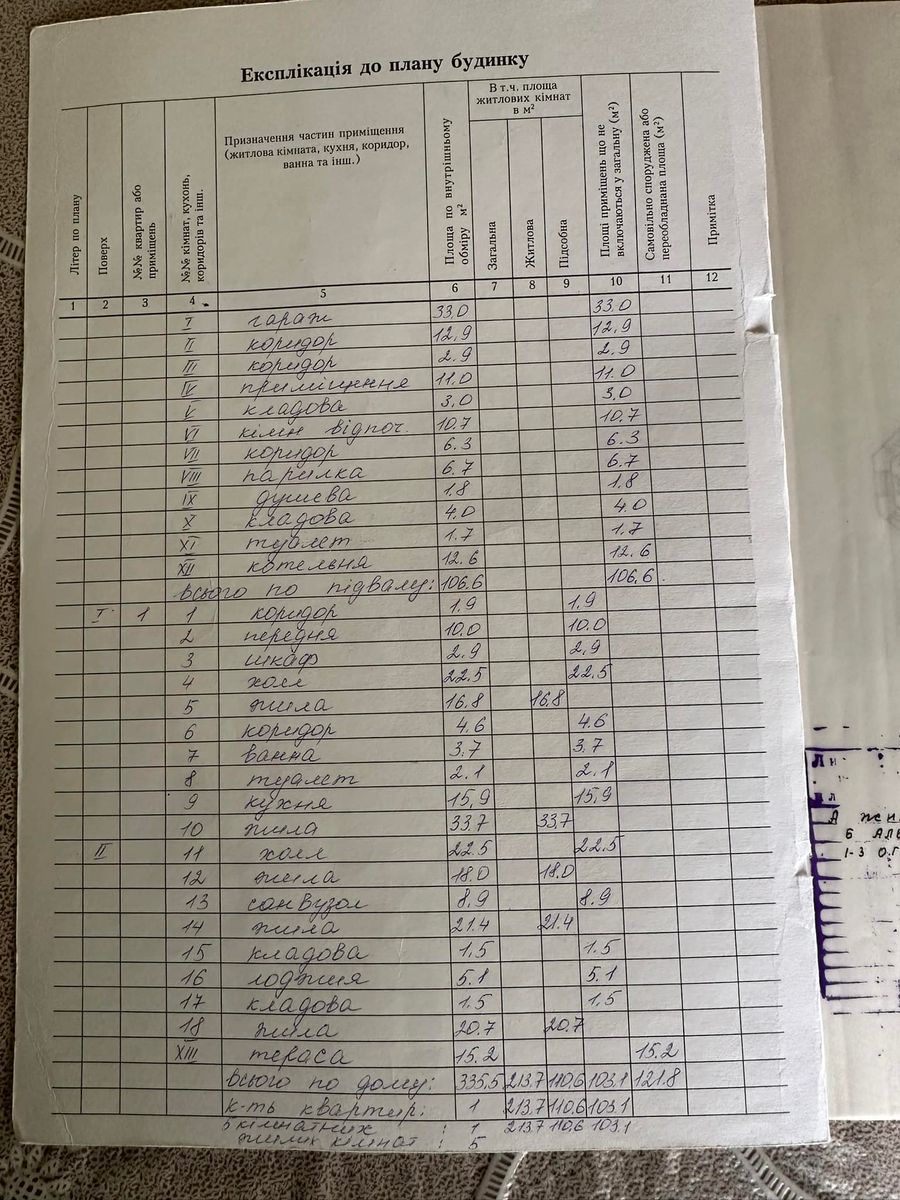 Експлікація до плану будинку
Літер по плану
Поверх
№№ квартир або приміщень
№№ кімнат, кухонь, коридорів та інш.
Призначення частин приміщення
(житлова кімната, кухня, коридор,
ванна та інш.)
Площа по внутрішньому обміру м²
В т.ч. площа
житлових кімнат
в м²
Загальна
Житлова
Підсобна
Площі приміщень що не включаються у загальну (м²)
Самовільно споруджена або переобладнана площа (м²)
Примітка
1 2 3 4 5 6 7 8 9 10 11 12
I гараж 33,0 33.0
II коридор 12,9 12,9
III коридор 2.9 2.9
IV приміщення 11.0 11.0
V кладова 3,0 3,0
VI кімн відпоч. 10.7 10,7
VII коридор 6.3 6.3
VIII парилка 6.7 6.7
IX душева 1.8 1.8
X кладова 4.0 4.0
XI туалет 1.7 1.7
XII котельня 12.6 12.6
Всього по підвалу: 106.6 106,6
I 1 1 коридор 1.9 1.9
2 передня 10.0 10.0
3 шкаф 2.9 2,9
4 холл 22.5 22,5
5 жила 16.8 16.8
6 коридор 4.6 4.6
7 ванна 3.7 3.7
8 туалет 2.1 2.1
9 кухня 15,9 15,9
10 жила 33.7 33,7
II 11 холл 22.5 22.5
12 жила 18.0 18.0
13 санвузол 8.9 8.9
14 жила 21.4 21.4
15 кладова 1,5 1.5
16 лоджия 5.1 5.1
17 кладова 1.5 1,5
18 жила 20.7 20.7
XIII тераса 15.2 15.2
Всього по дому: 335,5 213.7 110,6 103.1 121.8
к-ть квартир: 1 213.7 110.6 103.1
5 кімнатних : 1 213.7 110,6 103.1
жилих кімнат : 5